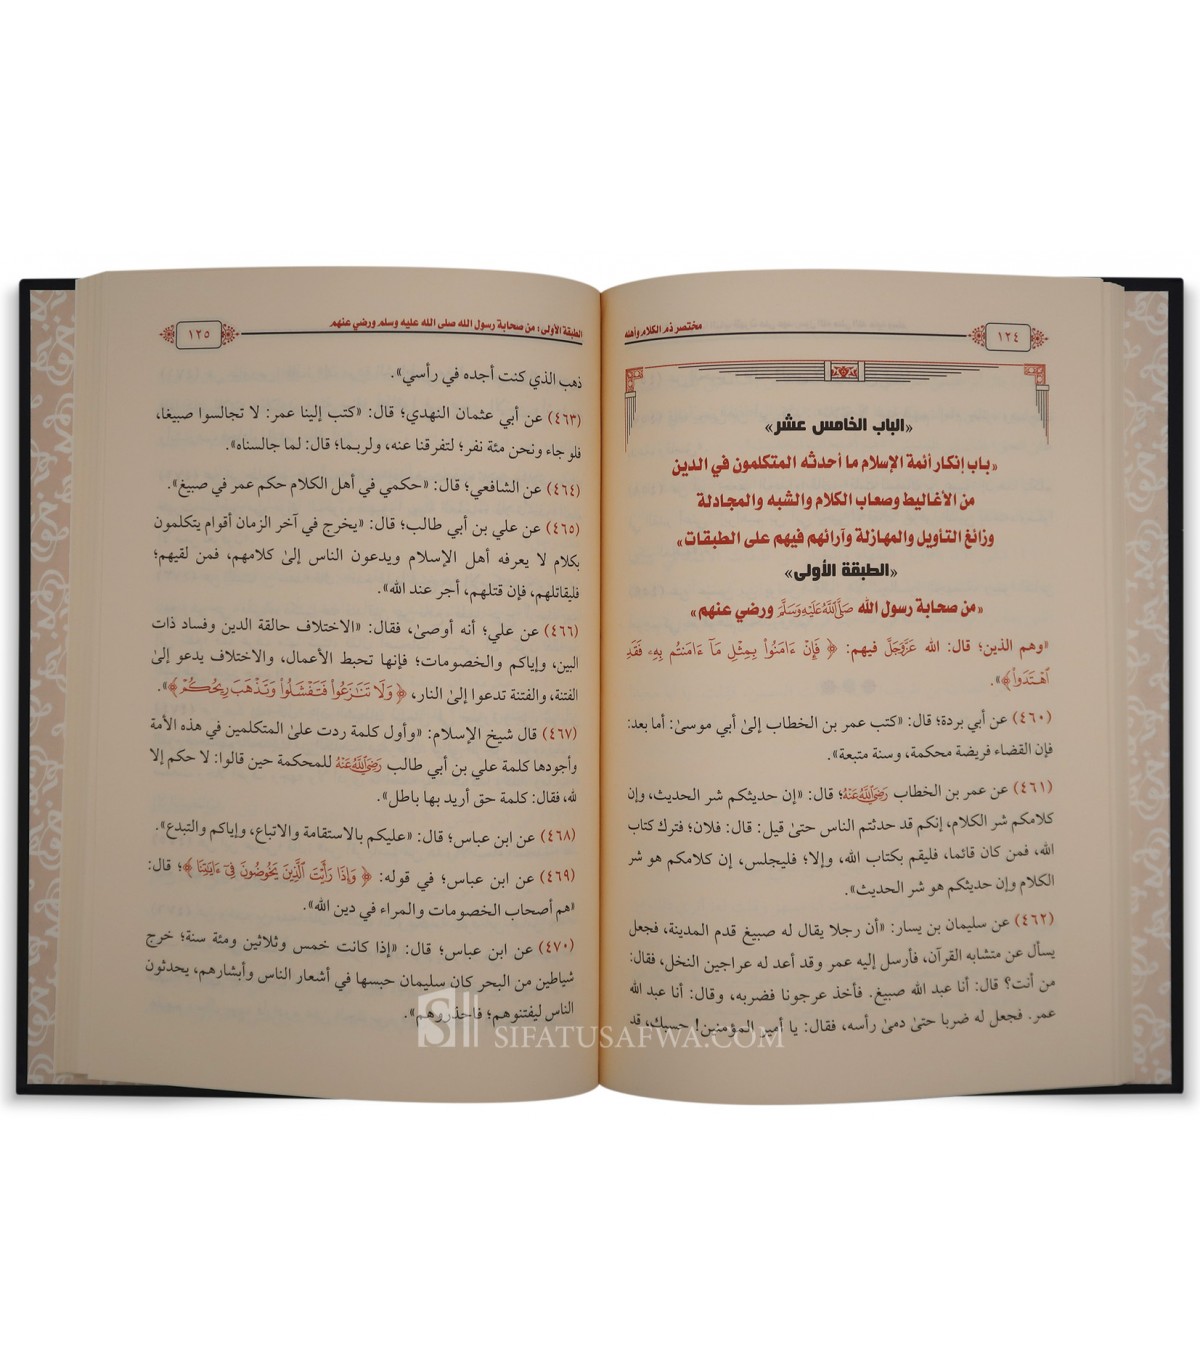 ١٢٤
مختصر ذم الكلام وأهله
«الباب الخامس عشر»
«باب إنكار أئمة الإسلام ما أحدثه المتكلمون في الدين
من الأغاليط وصعاب الكلام والشبه والمجادلة
وزائغ التأويل والمهازلة وآرائهم فيهم على الطبقات»
«الطبقة الأولى»
«من صحابة رسول الله ﷺ ورضي عنهم»
«وهم الذين؛ قال: الله عَزَّوَجَلَّ فيهم: ﴿ فَإِنْ ءَامَنُوا۟ بِمِثْلِ مَآ ءَامَنتُم بِهِۦ فَقَدِ
ٱهْتَدَوا۟﴾».
(٤٦٠) عن أبي بردة؛ قال: «كتب عمر بن الخطاب إلىٰ أبي موسىٰ: أما بعد:
فإن القضاء فريضة محكمة، وسنة متبعة».
(٤٦١) عن عمر بن الخطاب رَضِيَ اللَّهُ عَنْهُ؛ قال: «إن حديثكم شر الحديث، وإن
كلامكم شر الكلام، إنكم قد حدثتم الناس حتىٰ قيل: قال: فلان؛ فترك كتاب
الله، فمن كان قائما، فليقم بكتاب الله، وإلا؛ فليجلس، إن كلامكم هو شر
الكلام وإن حديثكم هو شر الحديث».
(٤٦٢) عن سليمان بن يسار: «أن رجلا يقال له صبيغ قدم المدينة، فجعل
يسأل عن متشابه القرآن، فأرسل إليه عمر وقد أعد له عراجين النخل، فقال:
من أنت؟ قال: أنا عبد الله صبيغ. فأخذ عرجونا فضربه، وقال: أنا عبد الله
عمر. فجعل له ضربا حتىٰ دمىٰ رأسه، فقال: يا أمير المؤمنين! حسبك، قد
الطبقة الأولى: من صحابة رسول الله صلى الله عليه وسلم ورضي عنهم
١٢٥
ذهب الذي كنت أجده في رأسي».
(٤٦٣) عن أبي عثمان النهدي؛ قال: «كتب إلينا عمر: لا تجالسوا صبيغا،
فلو جاء ونحن مئة نفر؛ لتفرقنا عنه، ولربما؛ قال: لما جالسناه».
(٤٦٤) عن الشافعي؛ قال: «حكمي في أهل الكلام حكم عمر في صبيغ».
(٤٦٥) عن علي بن أبي طالب؛ قال: «يخرج في آخر الزمان أقوام يتكلمون
بكلام لا يعرفه أهل الإسلام ويدعون الناس إلىٰ كلامهم، فمن لقيهم؛
فليقاتلهم، فإن قتلهم، أجر عند الله».
(٤٦٦) عن علي؛ أنه أوصىٰ، فقال: «الاختلاف حالقة الدين وفساد ذات
البين، وإياكم والخصومات؛ فإنها تحبط الأعمال، والاختلاف يدعو إلى
الفتنة، والفتنة تدعوا إلىٰ النار، ﴿ وَلَا تَنَٰزَعُوا۟ فَتَفْشَلُوا۟ وَتَذْهَبَ رِيحُكُمْ ﴾».
(٤٦٧) قال شيخ الإسلام: «وأول كلمة ردت علىٰ المتكلمين في هذه الأمة
وأجودها كلمة علي بن أبي طالب رَضِيَ اللَّهُ عَنْهُ للمحكمة حين قالوا: لا حكم إلا
لله، فقال: كلمة حق أريد بها باطل».
(٤٦٨) عن ابن عباس؛ قال: «عليكم بالاستقامة والاتباع، وإياكم والتبدع».
(٤٦٩) عن ابن عباس؛ في قوله: ﴿ وَإِذَا رَأَيْتَ ٱلَّذِينَ يَخُوضُونَ فِىٓ ءَايَٰتِنَا ﴾؛ قال:
«هم أصحاب الخصومات والمراء في دين الله».
(٤٧٠) عن ابن عباس؛ قال: «إذا كانت خمس وثلاثين ومئة سنة؛ خرج
شياطين من البحر كان سليمان حبسها في أشعار الناس وأبشارهم، يحدثون
الناس ليفتنوهم؛ فاحذروهم».
SIFATUSAFWA.COM